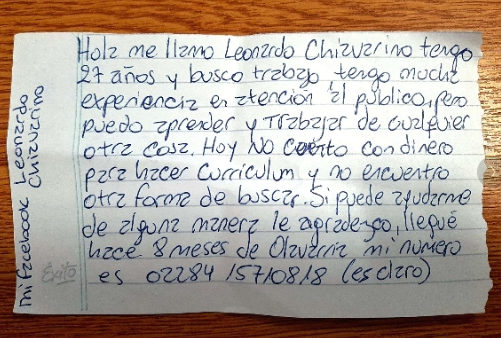 Hola me llamo Leonardo Chiavarino tengo
27 años y busco trabajo tengo mucha
experiencia en atención al público, pero
puedo aprender y Trabajar de cualquier
otra cosa. Hoy NO cuento con dinero
para hacer curriculum y no encuentro
otra forma de buscar. Si puede ayudarme
de alguna manera le agradezco, llegué
hace 8 meses de Olavarria mi numero
es 02284 15710818 (es claro)
mi facebook Leonardo
Chiavarino
Éxito